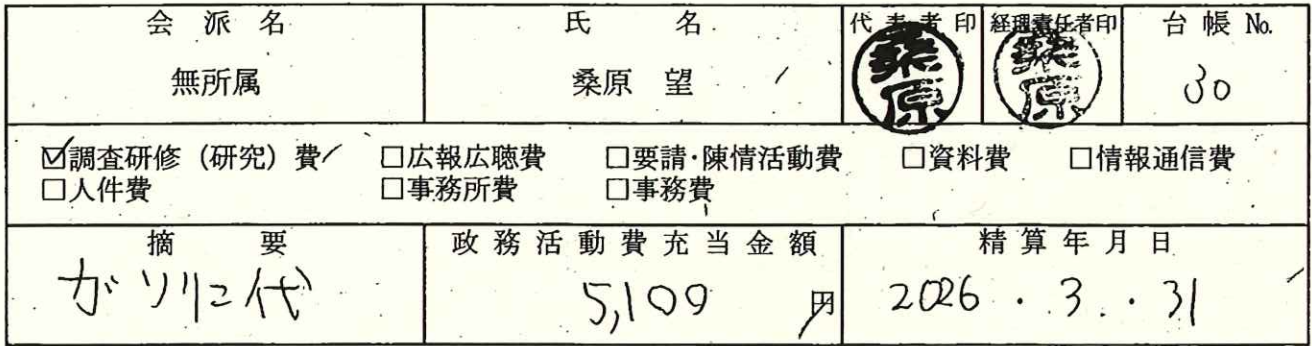 会派名 氏名 代表者印 経理責任者印 台帳 No.
無所属 桑原 望 桑原 桑原 30
☑調査研修(研究)費 □広報広聴費 □要請・陳情活動費 □資料費 □情報通信費
□人件費 □事務所費 □事務費
摘要 政務活動費充当金額 精算年月日
ガソリン代 5,109円 2026.3.31